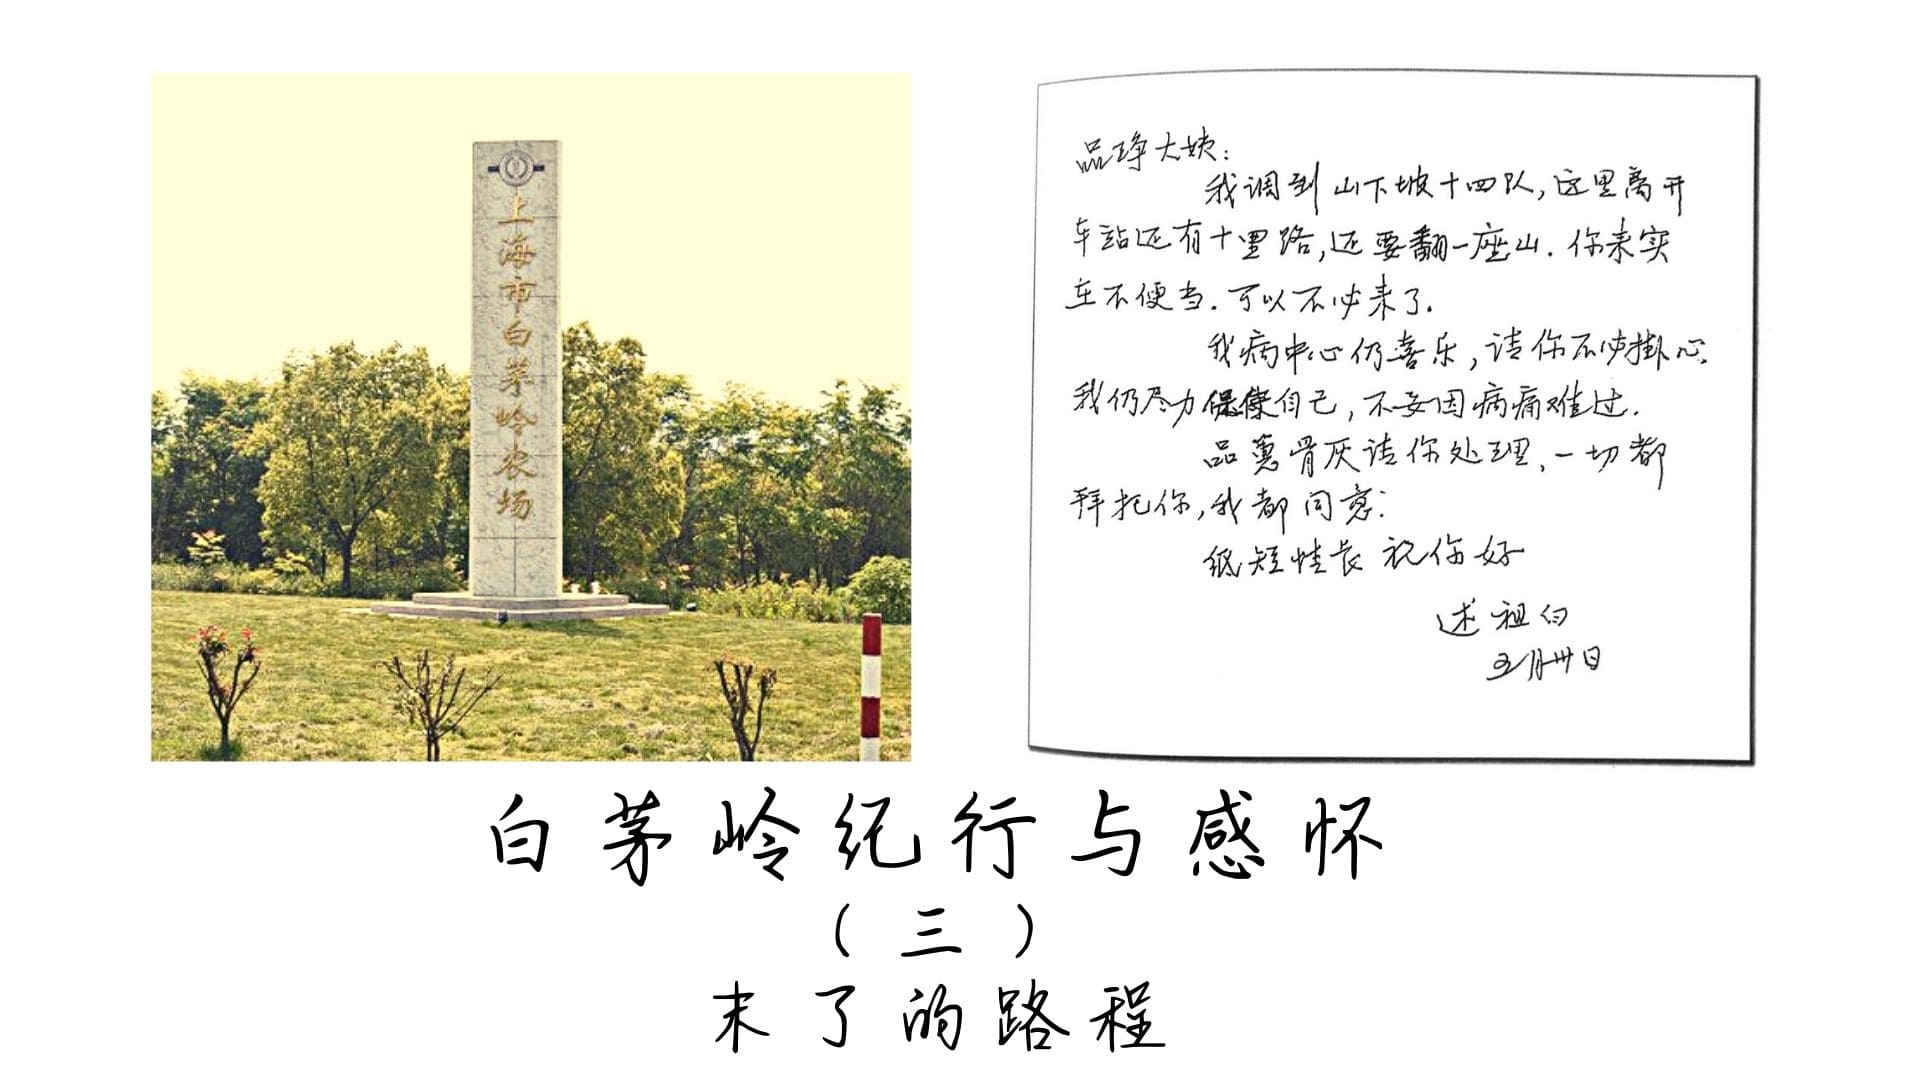 上海市白茅岭农场
品琤大姨:
我调到山下坡十四队,这里离开
车站还有十里路,还要翻一座山.你来实
在不便当.可以不必来了.
我病中心仍喜乐,请你不必掛心.
我仍尽力保養自己,不妄因病痛难过.
品蕙骨灰请你处理,一切都
拜托你,我都同意:
纸短情长 祝你好
述祖白
五月卅日
白茅岭纪行与感怀
(三)
末了的路程